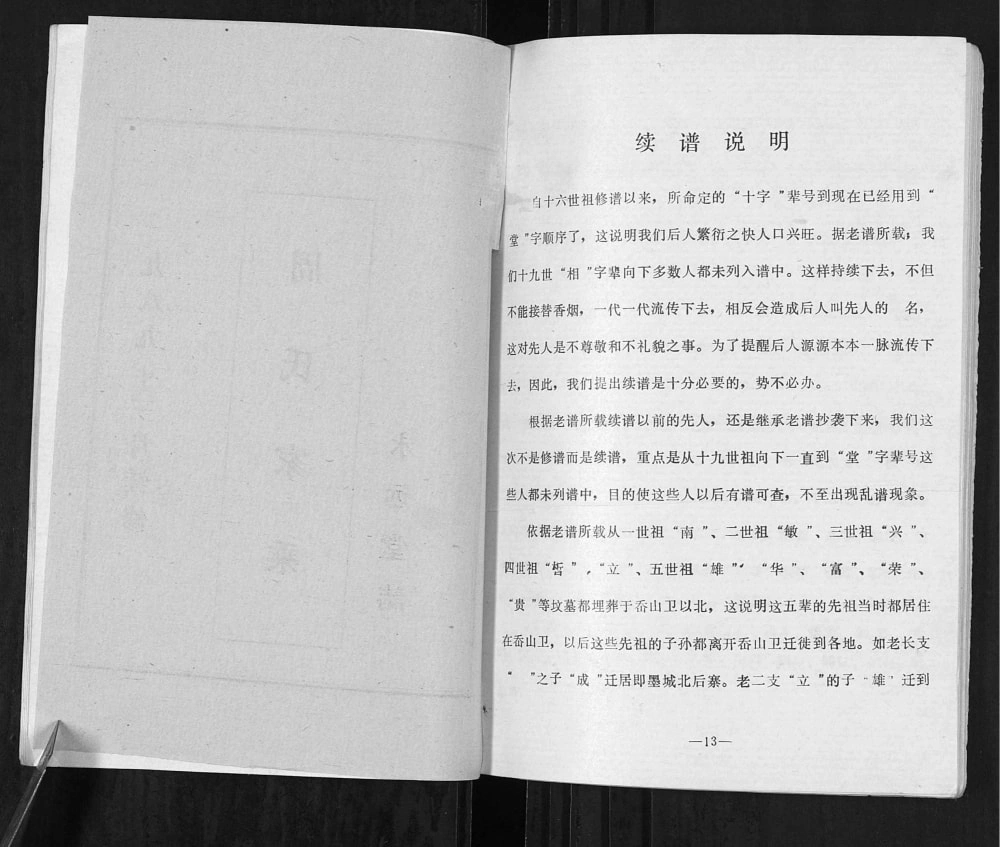 续谱说明
自十六世祖修谱以来，所命定的“十字”辈号到现在已经用到“
堂”字顺序了，这说明我们后人繁衍之快人口兴旺。据老谱所载，我
们十九世“相”字辈向下多数人都未列入谱中。这样持续下去，不但
不能接替香烟，一代一代流传下去，相反会造成后人叫先人的　名，
这对先人是不尊敬和不礼貌之事。为了提醒后人源源本本一脉流传下
去，因此，我们提出续谱是十分必要的，势不必办。
根据老谱所载续谱以前的先人，还是继承老谱抄袭下来，我们这
次不是修谱而是续谱，重点是从十九世祖向下一直到“堂”字辈号这
些人都未列谱中，目的使这些人以后有谱可查，不至出现乱谱现象。
依据老谱所载从一世祖“南”、二世祖“敏”、三世祖“兴”、
四世祖“晳”，“立”、五世祖“雄”“华”、“富”、“荣”、
“贵”等坟墓都埋葬于岙山卫以北，这说明这五辈的先祖当时都居住
在岙山卫，以后这些先祖的子孙都离开岙山卫迁徙到各地。如老长支
“　”之子“成”迁居即墨城北后寨。老二支“立”的子“雄”迁到
—13—